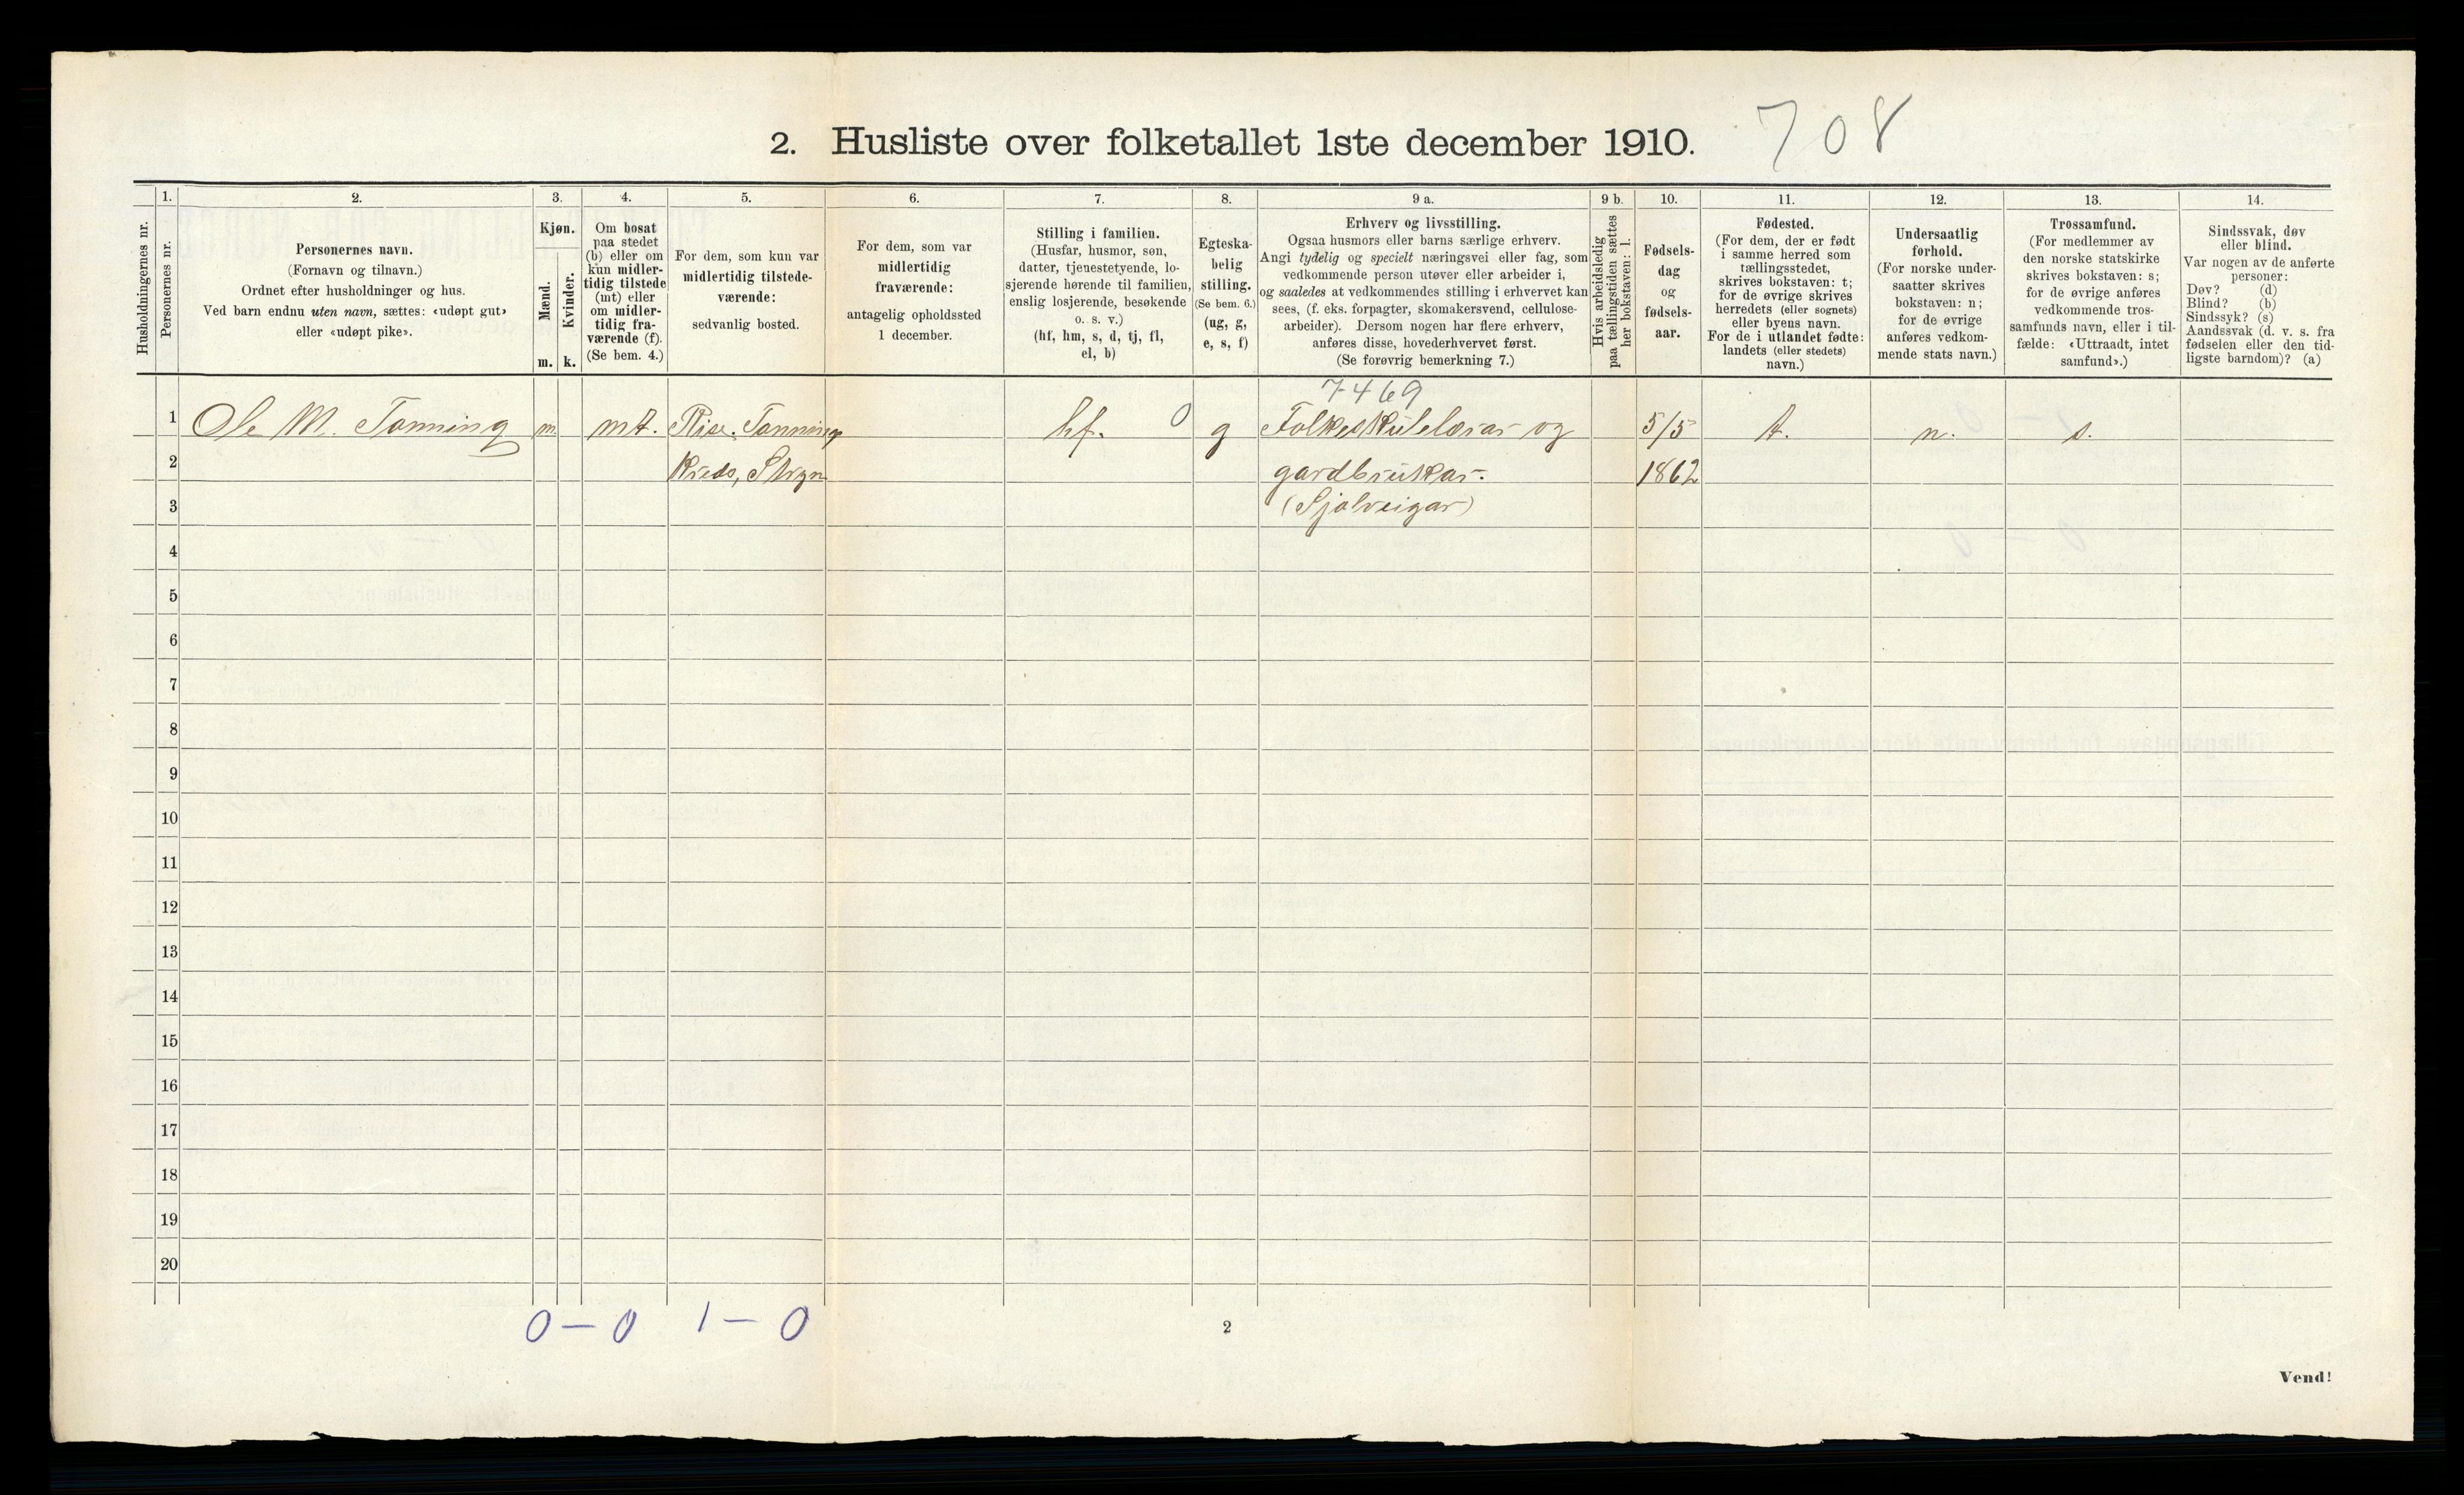 2. Husliste over folketallet 1ste december 1910. 708
Husholdningernes nr.
1.
Personernes nr.
2.
Personernes navn.
(Fornavn og tilnavn.)
Ordnet efter husholdninger og hus.
Ved barn endnu uten navn, sættes: «udøpt gut»
eller «udøpt pike».
3.
Kjøn.
Mænd.
Kvinder.
m. k.
4.
Om bosat
paa stedet
(b) eller om
kun midler-
tidig tilstede
(mt) eller
om midler-
tidig fra-
værende (f).
(Se bem. 4.)
5.
For dem, som kun var
midlertidig tilstede-
værende:
sedvanlig bosted.
6.
For dem, som var
midlertidig
fraværende:
antagelig opholdssted
1 december.
7.
Stilling i familien.
(Husfar, husmor, søn,
datter, tjenestetyende, lo-
sjerende hørende til familien,
enslig losjerende, besøkende
o. s. v.)
(hf, hm, s, d, tj, fl,
el, b)
8.
Egteska-
belig
stilling.
(Se bem. 6.)
(ug, g,
e, s, f)
9 a.
Erhverv og livsstilling.
Ogsaa husmors eller barns særlige erhverv.
Angi tydelig og specielt næringsvei eller fag, som
vedkommende person utøver eller arbeider i,
og saaledes at vedkommendes stilling i erhvervet kan
sees, (f. eks. forpagter, skomakersvend, cellulose-
arbeider). Dersom nogen har flere erhverv,
anføres disse, hovederhvervet først.
(Se forøvrig bemerkning 7.)
9 b.
Hvis arbeidsledig
paa tællingstiden sættes
her bokstaven: l.
10.
Fødsels-
dag
og
fødsels-
aar.
11.
Fødested.
(For dem, der er født
i samme herred som
tællingsstedet,
skrives bokstaven: t;
for de øvrige skrives
herredets (eller sognets)
eller byens navn.
For de i utlandet fødte:
landets (eller stedets)
navn.)
12.
Undersaatlig
forhold.
(For norske under-
saatter skrives
bokstaven: n;
for de øvrige
anføres vedkom-
mende stats navn.)
13.
Trossamfund.
(For medlemmer av
den norske statskirke
skrives bokstaven: s;
for de øvrige anføres
vedkommende tros-
samfunds navn, eller i til-
fælde: «Uttraadt, intet
samfund».)
14.
Sindssvak, døv
eller blind.
Var nogen av de anførte
personer:
Døv? (d)
Blind? (b)
Sindssyk? (s)
Aandssvak (d. v. s. fra
fødselen eller den tid-
ligste barndom)? (a)
7469
1 Ole M. Tonning m. mt. Rise. Tonning hf. 0 g Folkeskulelærar og 5/5 t. n. s.
2 Kreds, Stryn gardbrukar. 1862
3 (Sjølveigar)
4
5
6
7
8
9
10
11
12
13
14
15
16
17
18
19
20
0 — 0 1 — 0
2
Vend!